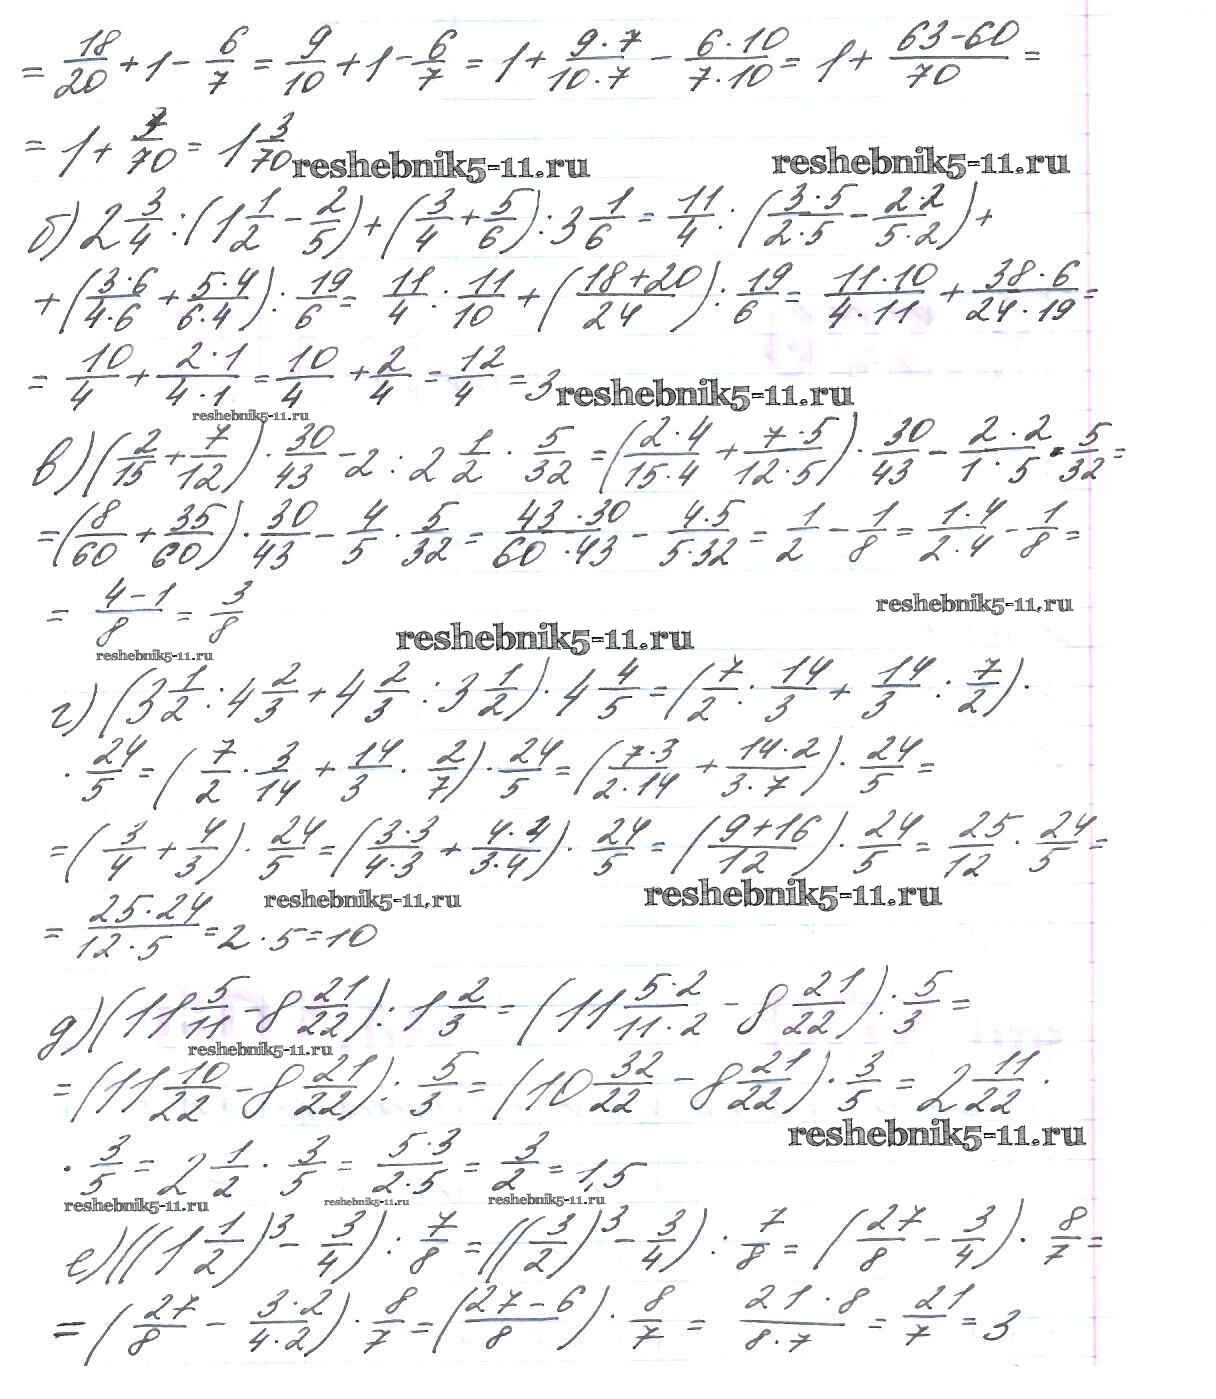 = 18/20 + 1 - 6/7 = 9/10 + 1 - 6/7 = 1 + 9·7/10·7 - 6·10/7·10 = 1 + 63-60/70 =
= 1 + 3/70 = 1 3/70 reshebnik5-11.ru reshebnik5-11.ru
б) 2 3/4 : (1 1/2 - 2/5) + (3/4 + 5/6) : 3 1/6 = 11/4 : (3·5/2·5 - 2·2/5·2) +
+ (3·6/4·6 + 5·4/6·4) : 19/6 = 11/4 : 11/10 + (18+20/24) : 19/6 = 11·10/4·11 + 38·6/24·19 =
= 10/4 + 2·1/4·1 = 10/4 + 2/4 = 12/4 = 3 reshebnik5-11.ru
reshebnik5-11.ru
в) (2/15 + 7/12) · 30/43 - 2 : 2 1/2 · 5/32 = (2·4/15·4 + 7·5/12·5) · 30/43 - 2·2/1·5 · 5/32 =
= (8/60 + 35/60) · 30/43 - 4/5 · 5/32 = 43·30/60·43 - 4·5/5·32 = 1/2 - 1/8 = 1·4/2·4 - 1/8 =
= 4-1/8 = 3/8 reshebnik5-11.ru
reshebnik5-11.ru reshebnik5-11.ru
г) (3 1/2 : 4 2/3 + 4 2/3 : 3 1/2) · 4 4/5 = (7/2 : 14/3 + 14/3 : 7/2) ·
· 24/5 = (7/2 · 3/14 + 14/3 · 2/7) · 24/5 = (7·3/2·14 + 14·2/3·7) · 24/5 =
= (3/4 + 4/3) · 24/5 = (3·3/4·3 + 4·4/3·4) · 24/5 = (9+16/12) · 24/5 = 25/12 · 24/5 =
reshebnik5-11.ru reshebnik5-11.ru
= 25·24/12·5 = 2·5 = 10
д) (11 5/11 - 8 21/22) : 1 2/3 = (11 5·2/11·2 - 8 21/22) : 5/3 =
reshebnik5-11.ru
= (11 10/22 - 8 21/22) : 5/3 = (10 32/22 - 8 21/22) · 3/5 = 2 11/22 ·
reshebnik5-11.ru
· 3/5 = 2 1/2 · 3/5 = 5·3/2·5 = 3/2 = 1,5
reshebnik5-11.ru reshebnik5-11.ru reshebnik5-11.ru
е) ((1 1/2)³ - 3/4) : 7/8 = ((3/2)³ - 3/4) : 7/8 = (27/8 - 3/4) · 8/7 =
= (27/8 - 3·2/4·2) · 8/7 = (27-6/8) · 8/7 = 21·8/8·7 = 21/7 = 3